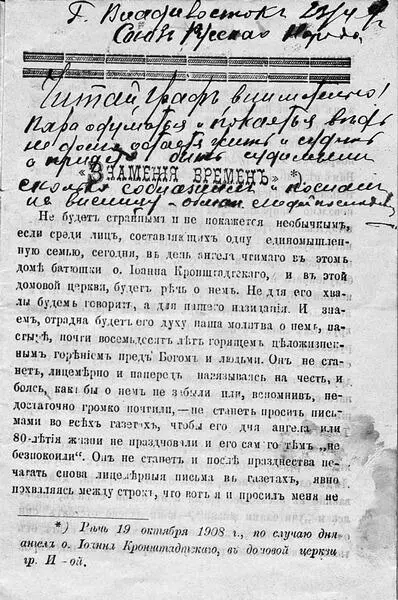 Г. Владивосток
Союзъ Русскаго Народа
Читай Графъ внимательно!
Пора одуматься и покаяться ведь
не долго остается жить и
быть судимыми
«ЗНАМЕНІЯ ВРЕМЕНЪ» *)
сколько соблазнили и послали
на висилицу
Не будетъ страннымъ и не покажется необычнымъ,
если среди лицъ, составляющихъ одну единомышлен-
ную семью, сегодня, въ день ангела чтимаго въ этомъ
домѣ батюшки о. Іоанна Кронштадскаго, и въ этой
домовой церкви, будетъ рѣчь о немъ. Не для его хва-
лы будемъ говорить, а для нашего назиданія. И зна-
емъ, отрадна будетъ его духу наша молитва о немъ, па-
стырѣ, почти восемьдесятъ лѣтъ горящемъ цѣложизнен-
нымъ горѣніемъ предъ Богомъ и людьми. Онъ не ста-
нетъ, лицемѣрно и напередъ навязываясь на честь, и
боясь, какъ бы о немъ не забыли или, вспомнивъ, не-
достаточно громко почтили,—не станетъ просить пись-
мами во всѣхъ газетахъ, чтобы его дня ангела или
80-лѣтія жизни не праздновали и его самого тѣмъ „не
безпокоили". Онъ не станетъ и послѣ празднества пе-
чатать снова лицемѣрныя письма въ газетахъ, явно
похваляясь между строкъ, что вотъ я и просилъ меня не
*) Рѣчь 19 октября 1908 г., по случаю дня
ангела о. Іоанна Кронштадтскаго, въ домовой церкви
гр. И—ой.